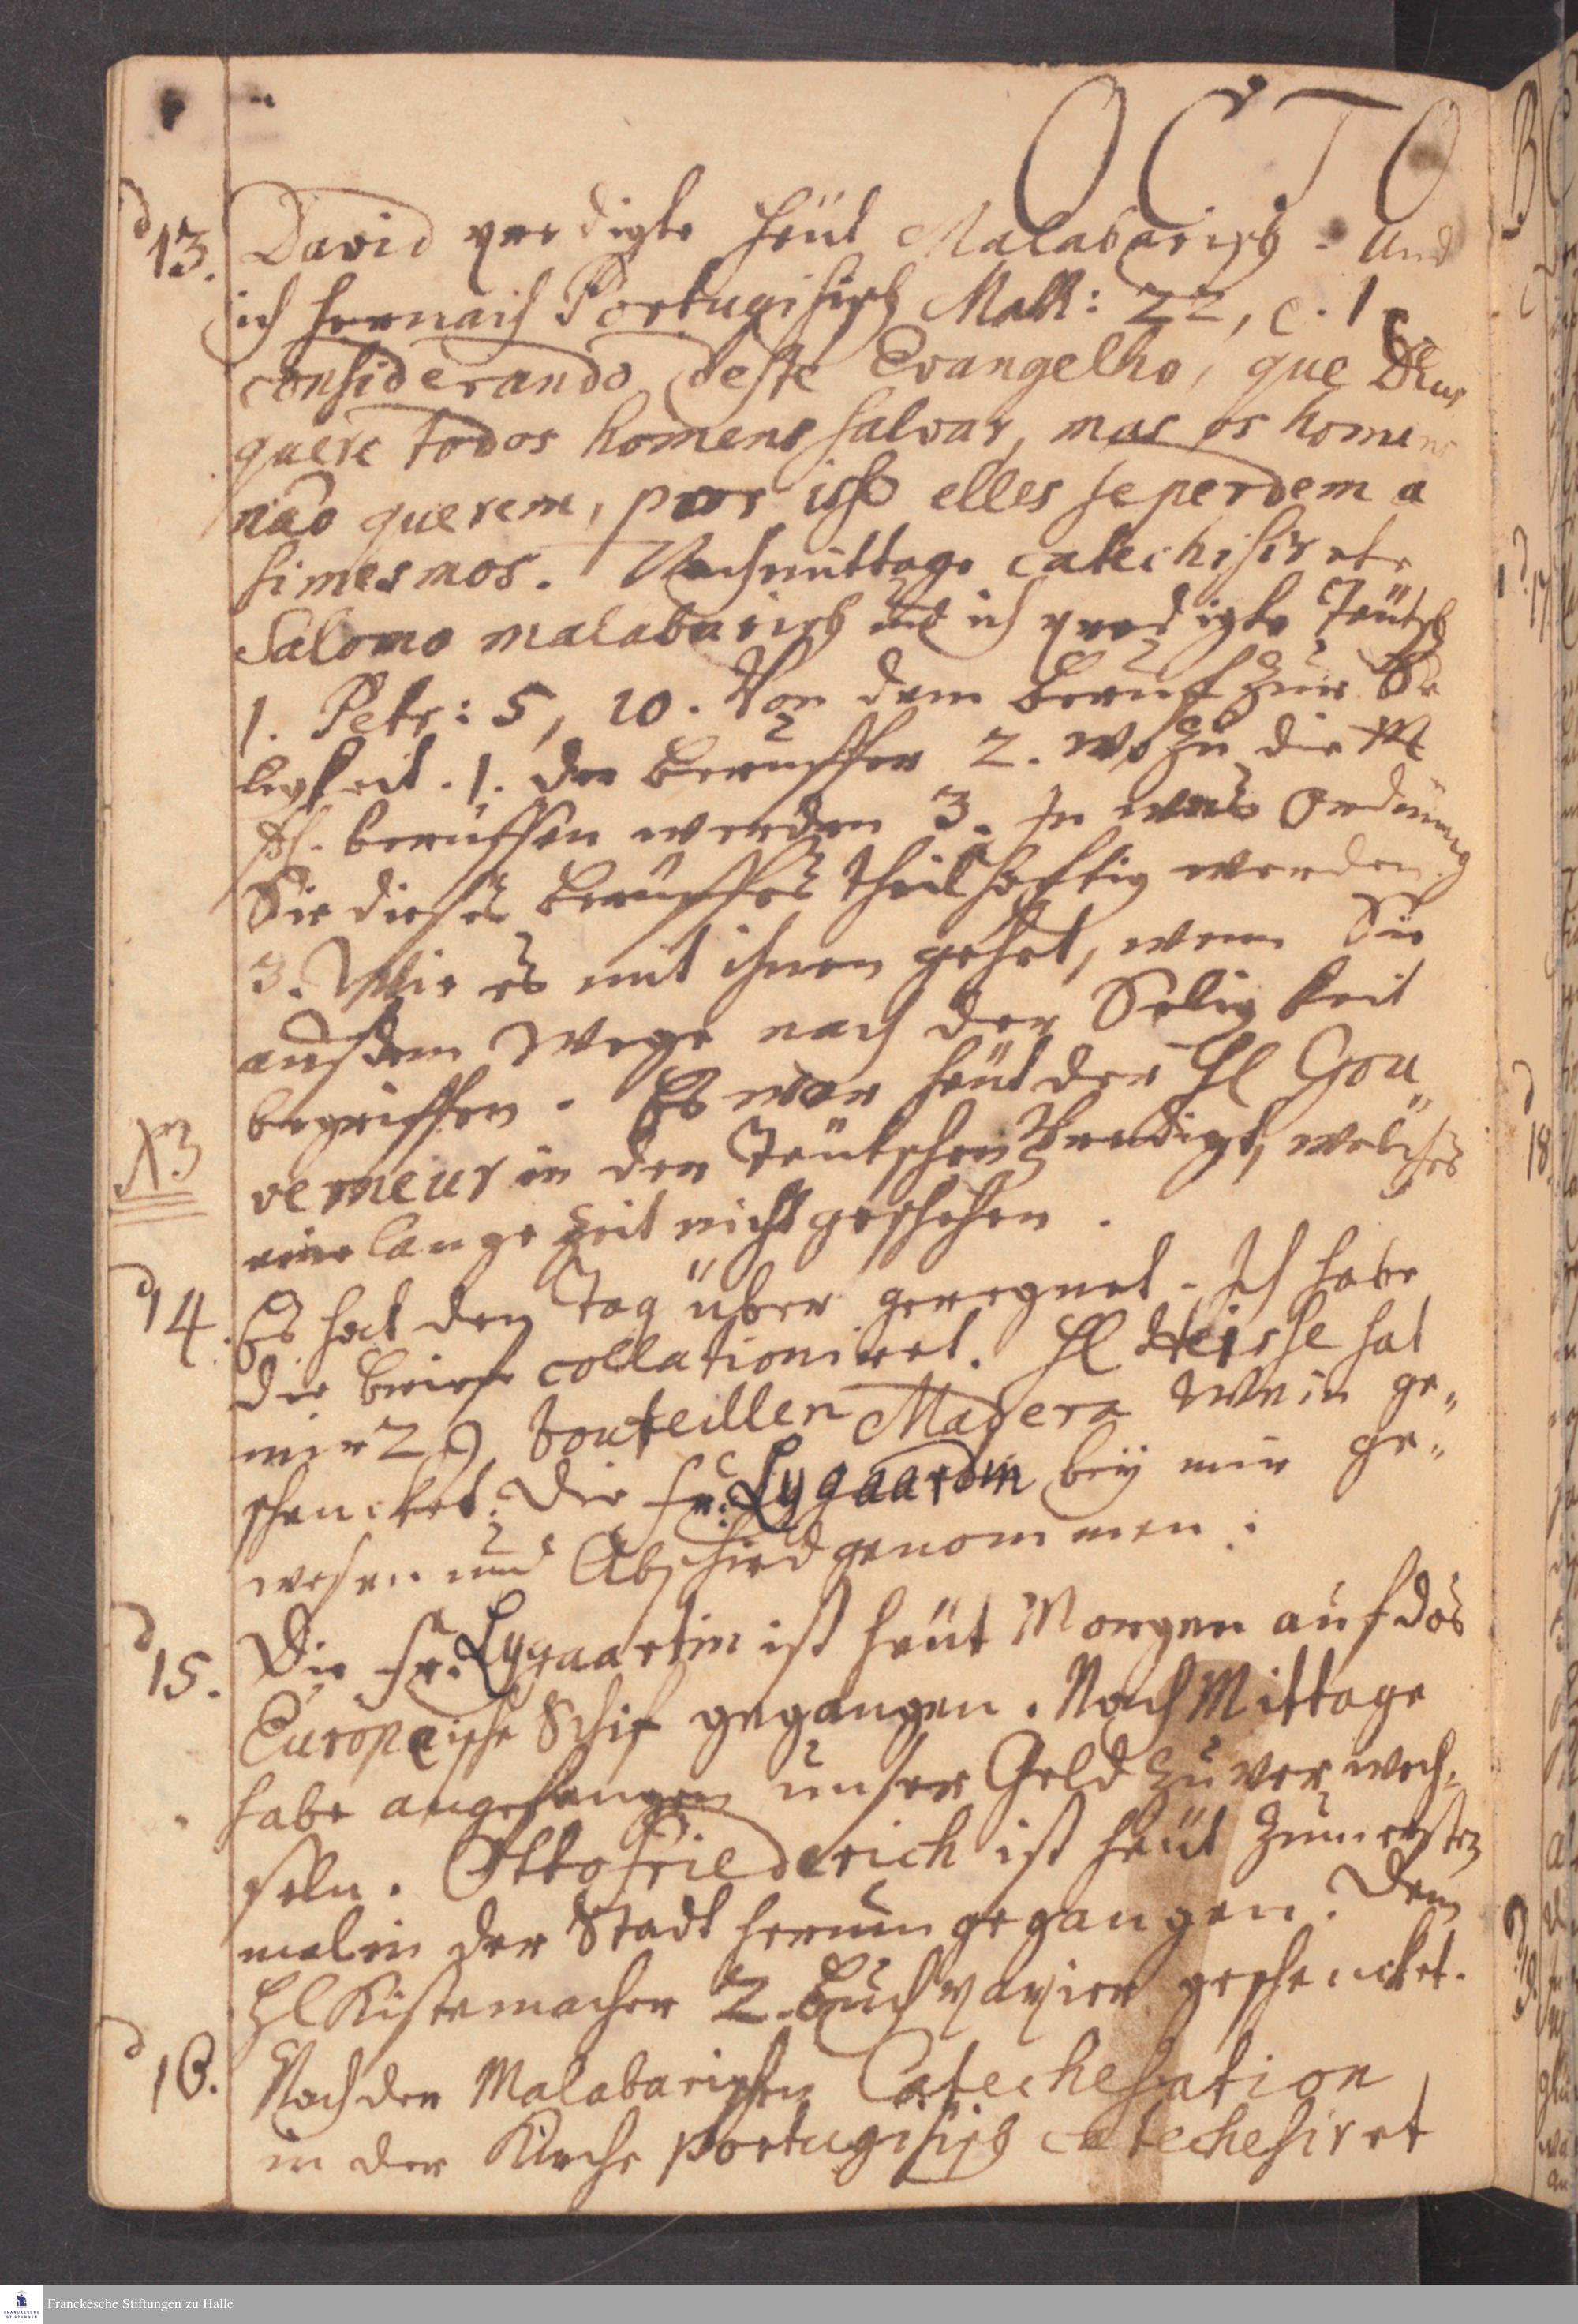 OCTO
d 13. David predigte heüt Malabarisch und
ich hernach Portugisisch Matth: 22, c. 1
considerando deste Evangelho, que Deus
quere todos homens salvar, mas os homens
não querem, por isso elles seperdem a
simesmos. Nachmittage catechisirete
Salomo malabarisch und ich predigte Teütsch
1. Petr: 5, 10. Von dem Beruf zur Se
ligkeit. 1. der Beruffer 2. wozu die M
sch. beruffen werden 3. In was Ordnung
Sie dieses Beruffes theilhafftig werden.
3. Wie es mit ihnen gehet, wenn Sie
auf dem Wege nach der Seligkeit
begriffen. Es war heüt der Hl Gou„
verneur in der Teütschen Predigt, welches
eine lange Zeit nicht geschehen.
d 14. Es hat den Tag über geregnet. Ich habe
die Briefe collationiret. Hl Heisse hat
mir 29 bouteillen Madera Wein ge„
schencket. Die Fr: Lygaardin bey mir ge„
wesen und Abschied genommen.
d 15. Die Fr. Lygaartin ist heüt Morgen auf das
Europaische Schif gegangen. Nach Mittage
habe angefangen unser Geld zu verwech„
seln. Otto Friederich ist heüt zum ersten
mal in der Stadt herum gegangen. Dem
Hl Kistemacher 2. Buch papier geschencket.
d 16. Nach der Malabarischen Catechesation
in der Kirche portugisisch catechesiret